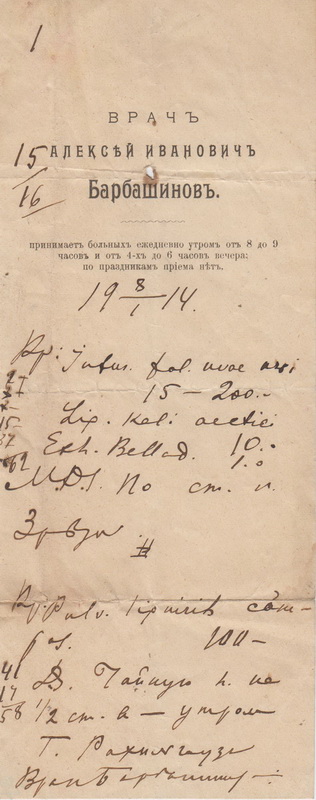 1
ВРАЧЪ
15 АЛЕКСѢЙ ИВАНОВИЧЪ
16 Барбашиновъ.
принимаетъ больныхъ ежедневно утромъ отъ 8 до 9
часовъ и отъ 4-хъ до 6 часовъ вечера;
по праздникамъ пріема нѣтъ.
19 8/1 14.
Rp: Infus. fol. uvae ursi
15 — 200.-
Liq. Kali acetici
Extr. Bellad. 10.0
1.0
M.D.S. По ст. л.
#
Rp. Pulv. Liquirit. com-
pos. 100-
41
17 D. Чайную л. на
58 1/2 ст. в — утром
Г.
Врач Барбашинов